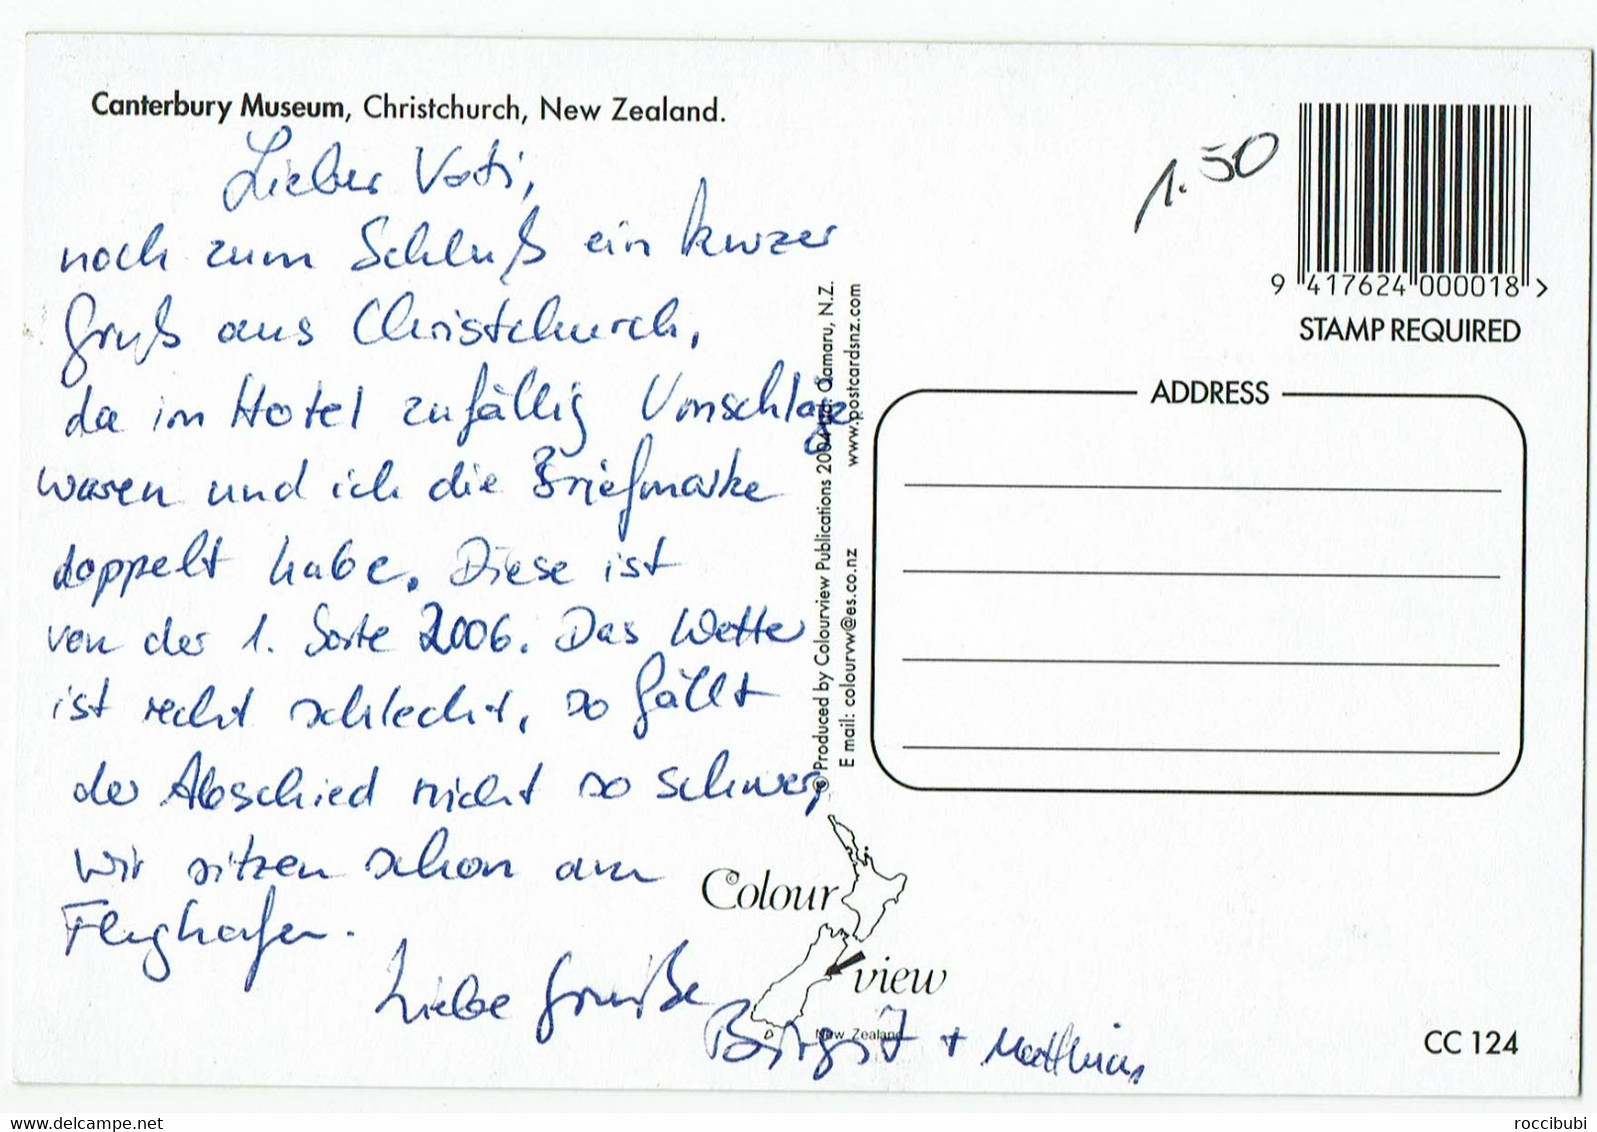 Canterbury Museum, Christchurch, New Zealand.
Lieber Vati,
noch zum Schluß ein kurzer
Gruß aus Christchurch,
da im Hotel zufällig Umschläge
waren und ich die Briefmarke
doppelt habe. Diese ist
von der 1. Sorte 2006. Das Wetter
ist recht schlecht, so fällt
der Abschied nicht so schwer,
wir sitzen schon am
Flughafen.
Liebe Grüße
Birgit + Matthias
© Produced by Colourview Publications 2004 Ltd. Oamaru, N.Z.
E mail: colourvw@es.co.nz www.postcardsnz.com
Colour
view
New Zealand
1.50
9 417624 000018 >
STAMP REQUIRED
ADDRESS
CC 124
delcampe.net
roccibubi